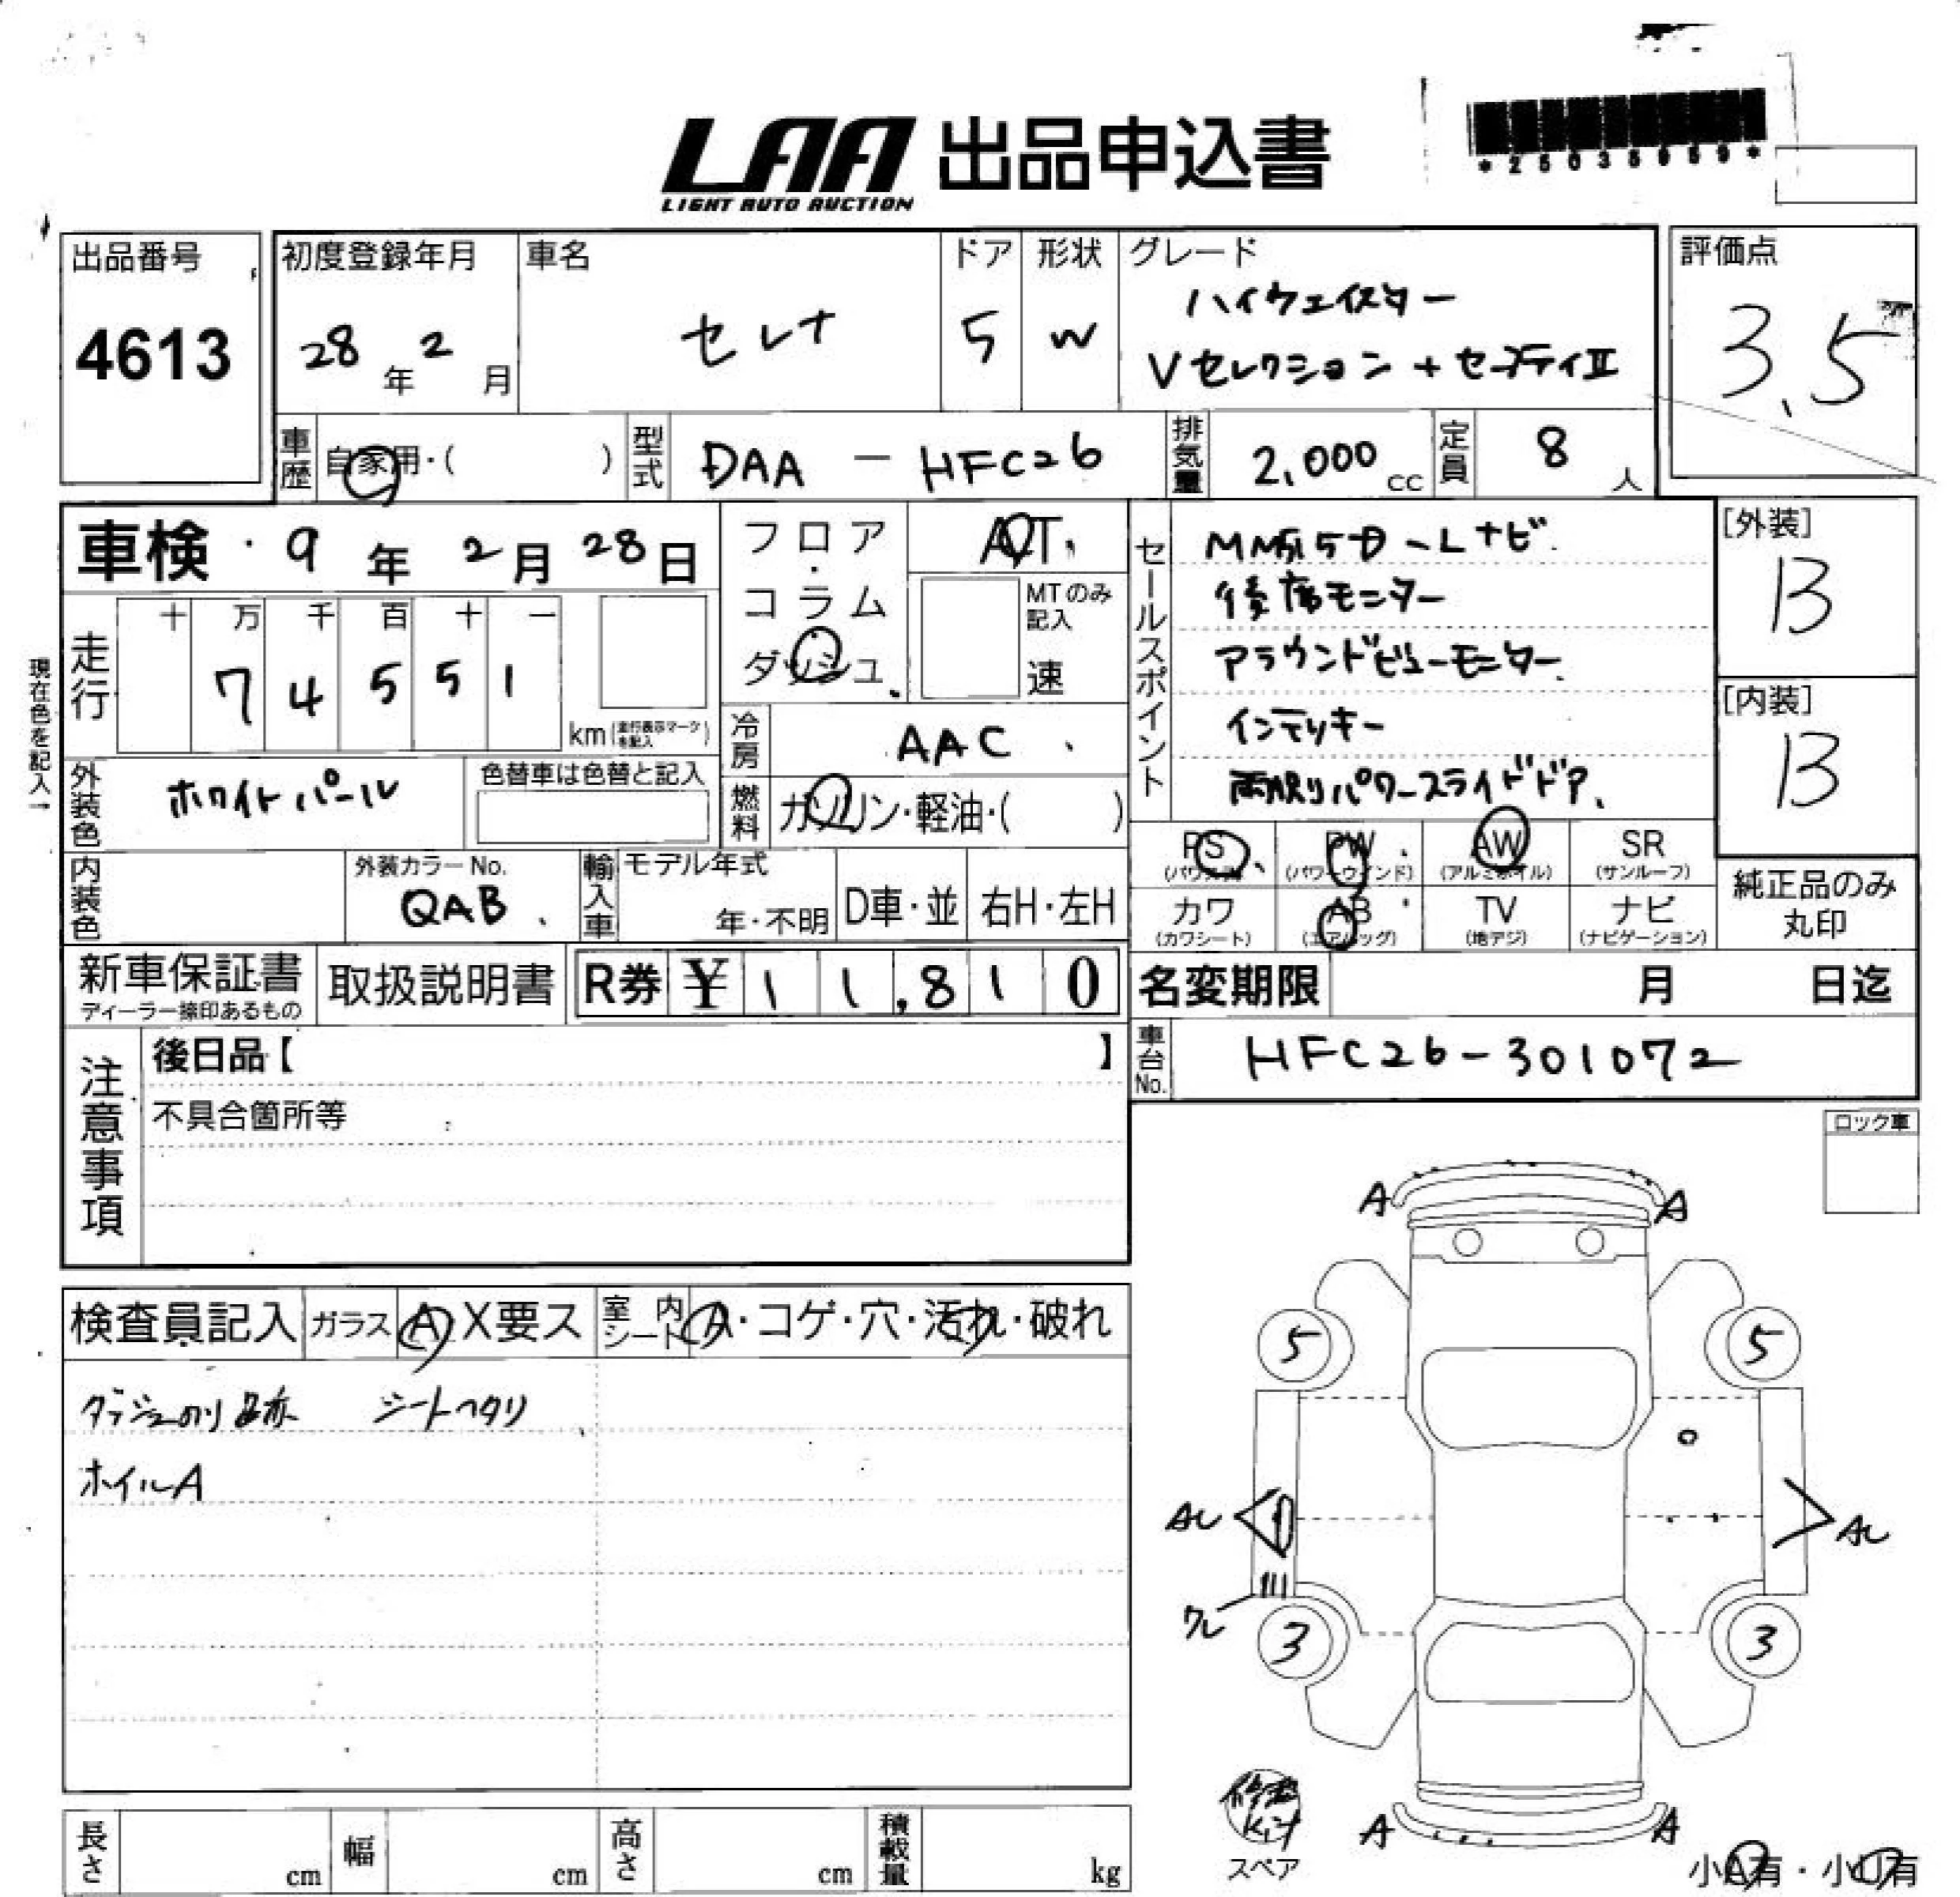 LAA 出品申込書
LIGHT AUTO AUCTION
*25038959*
出品番号
4613
初度登録年月
28年2月
車名
セレナ
ドア
5
形状
W
グレード
ハイウェイスター
Vセレクション+セーフティII
評価点
3.5
車歴
自家用・( )
型式
DAA-HFC26
排気量
2,000cc
定員
8人
車検 9年2月28日
走行
十 万 千 百 十 一
7 4 5 5 1
km(走行表示マークを記入)
現在色を記入→
フロア・コラム
ダッシュ
AT
MTのみ記入
速
冷房
AAC
燃料
ガソリン・軽油・( )
外装色
ホワイトパール
色替車は色替と記入
内装色
外装カラーNo.
QAB
輸入車
モデル年式
年・不明
D車・並
右H・左H
セールスポイント
後席モニター
アラウンドビューモニター
インテリキー
両側パワースライドドア
[外装]
B
[内装]
B
PS (パワステ)
PW (パワーウインド)
AW (アルミホイル)
SR (サンルーフ)
カワ (カワシート)
AB (エアバッグ)
TV (地デジ)
ナビ (ナビゲーション)
純正品のみ
丸印
新車保証書
ディーラー捺印あるもの
取扱説明書
R券 ¥11,810
名変期限 月 日迄
車台No.
HFC26-301072
注意事項
後日品【 】
不具合箇所等
ロック車
検査員記入
ガラス A X要ス
室内シート A・コゲ・穴・汚れ・破れ
ダッシュのり跡 シートヘタリ
ホイルA
A A
5 5
AU AU
ワレ
3 3
A A
修理kit
スペア
小A有・小U有
長さ cm
幅 cm
高さ cm
積載量 kg